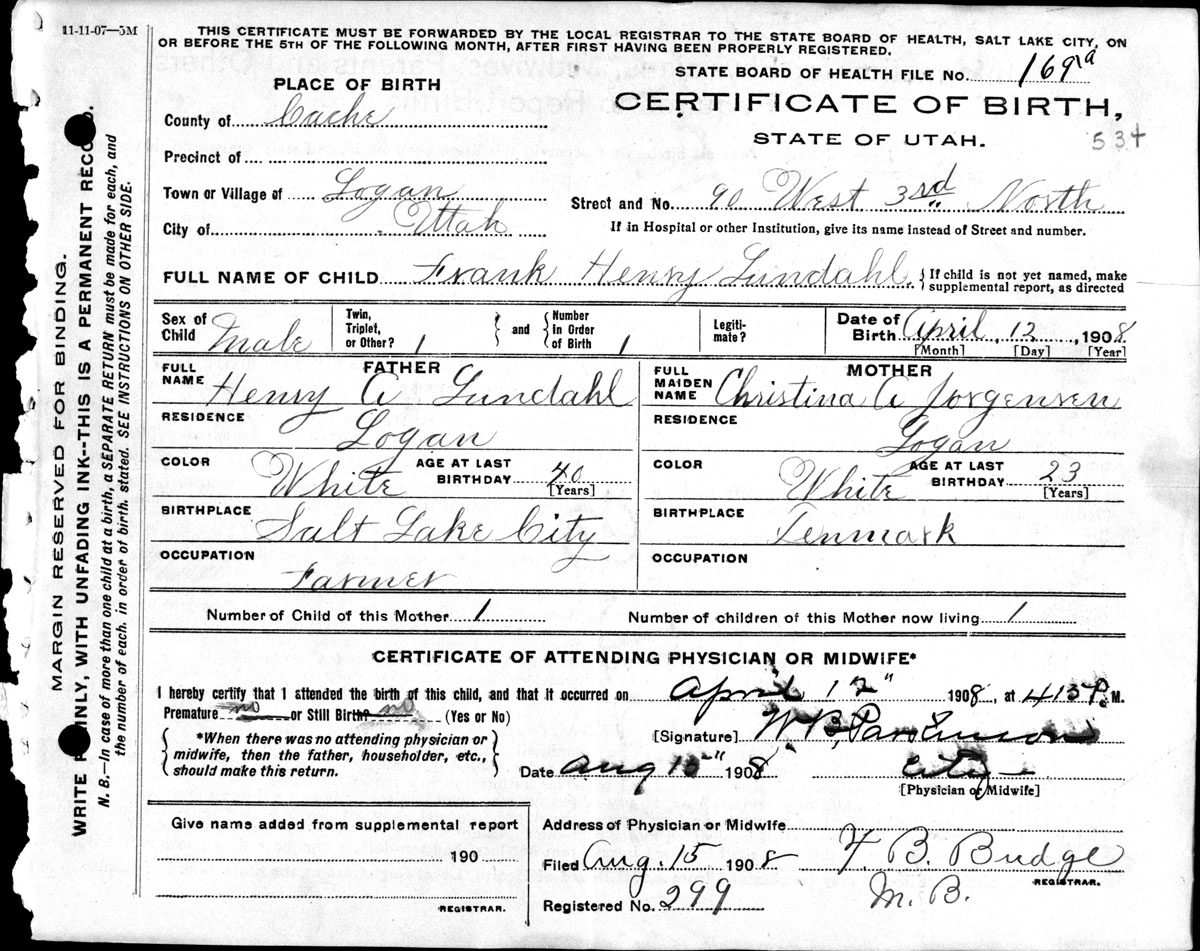 11-11-07—5M
THIS CERTIFICATE MUST BE FORWARDED BY THE LOCAL REGISTRAR TO THE STATE BOARD OF HEALTH, SALT LAKE CITY, ON
OR BEFORE THE 5TH OF THE FOLLOWING MONTH, AFTER FIRST HAVING BEEN PROPERLY REGISTERED.
STATE BOARD OF HEALTH FILE No. 169
PLACE OF BIRTH
CERTIFICATE OF BIRTH,
County of Cache
STATE OF UTAH.
534
Precinct of
Town or Village of Logan
Street and No. 90 West 3rd North
City of Utah
If in Hospital or other Institution, give its name instead of Street and number.
FULL NAME OF CHILD Frank Henry Lundahl. { If child is not yet named, make
supplemental report, as directed
Sex of Child Male
Twin, Triplet, or Other? 1 } and { Number In Order of Birth 1
Legiti-mate?
Date of Birth April, 12, 1908
[Month] [Day] [Year]
FATHER
FULL NAME Henry A Lundahl
RESIDENCE Logan
COLOR White
AGE AT LAST BIRTHDAY 40 [Years]
BIRTHPLACE Salt Lake City
OCCUPATION Farmer
MOTHER
FULL MAIDEN NAME Christina A Jorgensen
RESIDENCE Logan
COLOR White
AGE AT LAST BIRTHDAY 23 [Years]
BIRTHPLACE Denmark
OCCUPATION
Number of Child of this Mother 1
Number of children of this Mother now living 1
CERTIFICATE OF ATTENDING PHYSICIAN OR MIDWIFE*
I hereby certify that I attended the birth of this child, and that it occurred on April 12" 1908, at 415 P. M.
Premature no or Still Birth? no (Yes or No)
*When there was no attending physician or
midwife, then the father, householder, etc.,
should make this return.
[Signature] W B Parkinson
Date Aug 1908
City
[Physician or Midwife]
Give name added from supplemental report
190
REGISTRAR.
Address of Physician or Midwife
Filed Aug. 15 1908
B. Budge
REGISTRAR.
Registered No. 299
M. B.
MARGIN RESERVED FOR BINDING.
WRITE PLAINLY, WITH UNFADING INK--THIS IS A PERMANENT RECORD.
N. B.—In case of more than one child at a birth, a SEPARATE RETURN must be made for each, and
the number of each, in order of birth, stated. SEE INSTRUCTIONS ON OTHER SIDE.